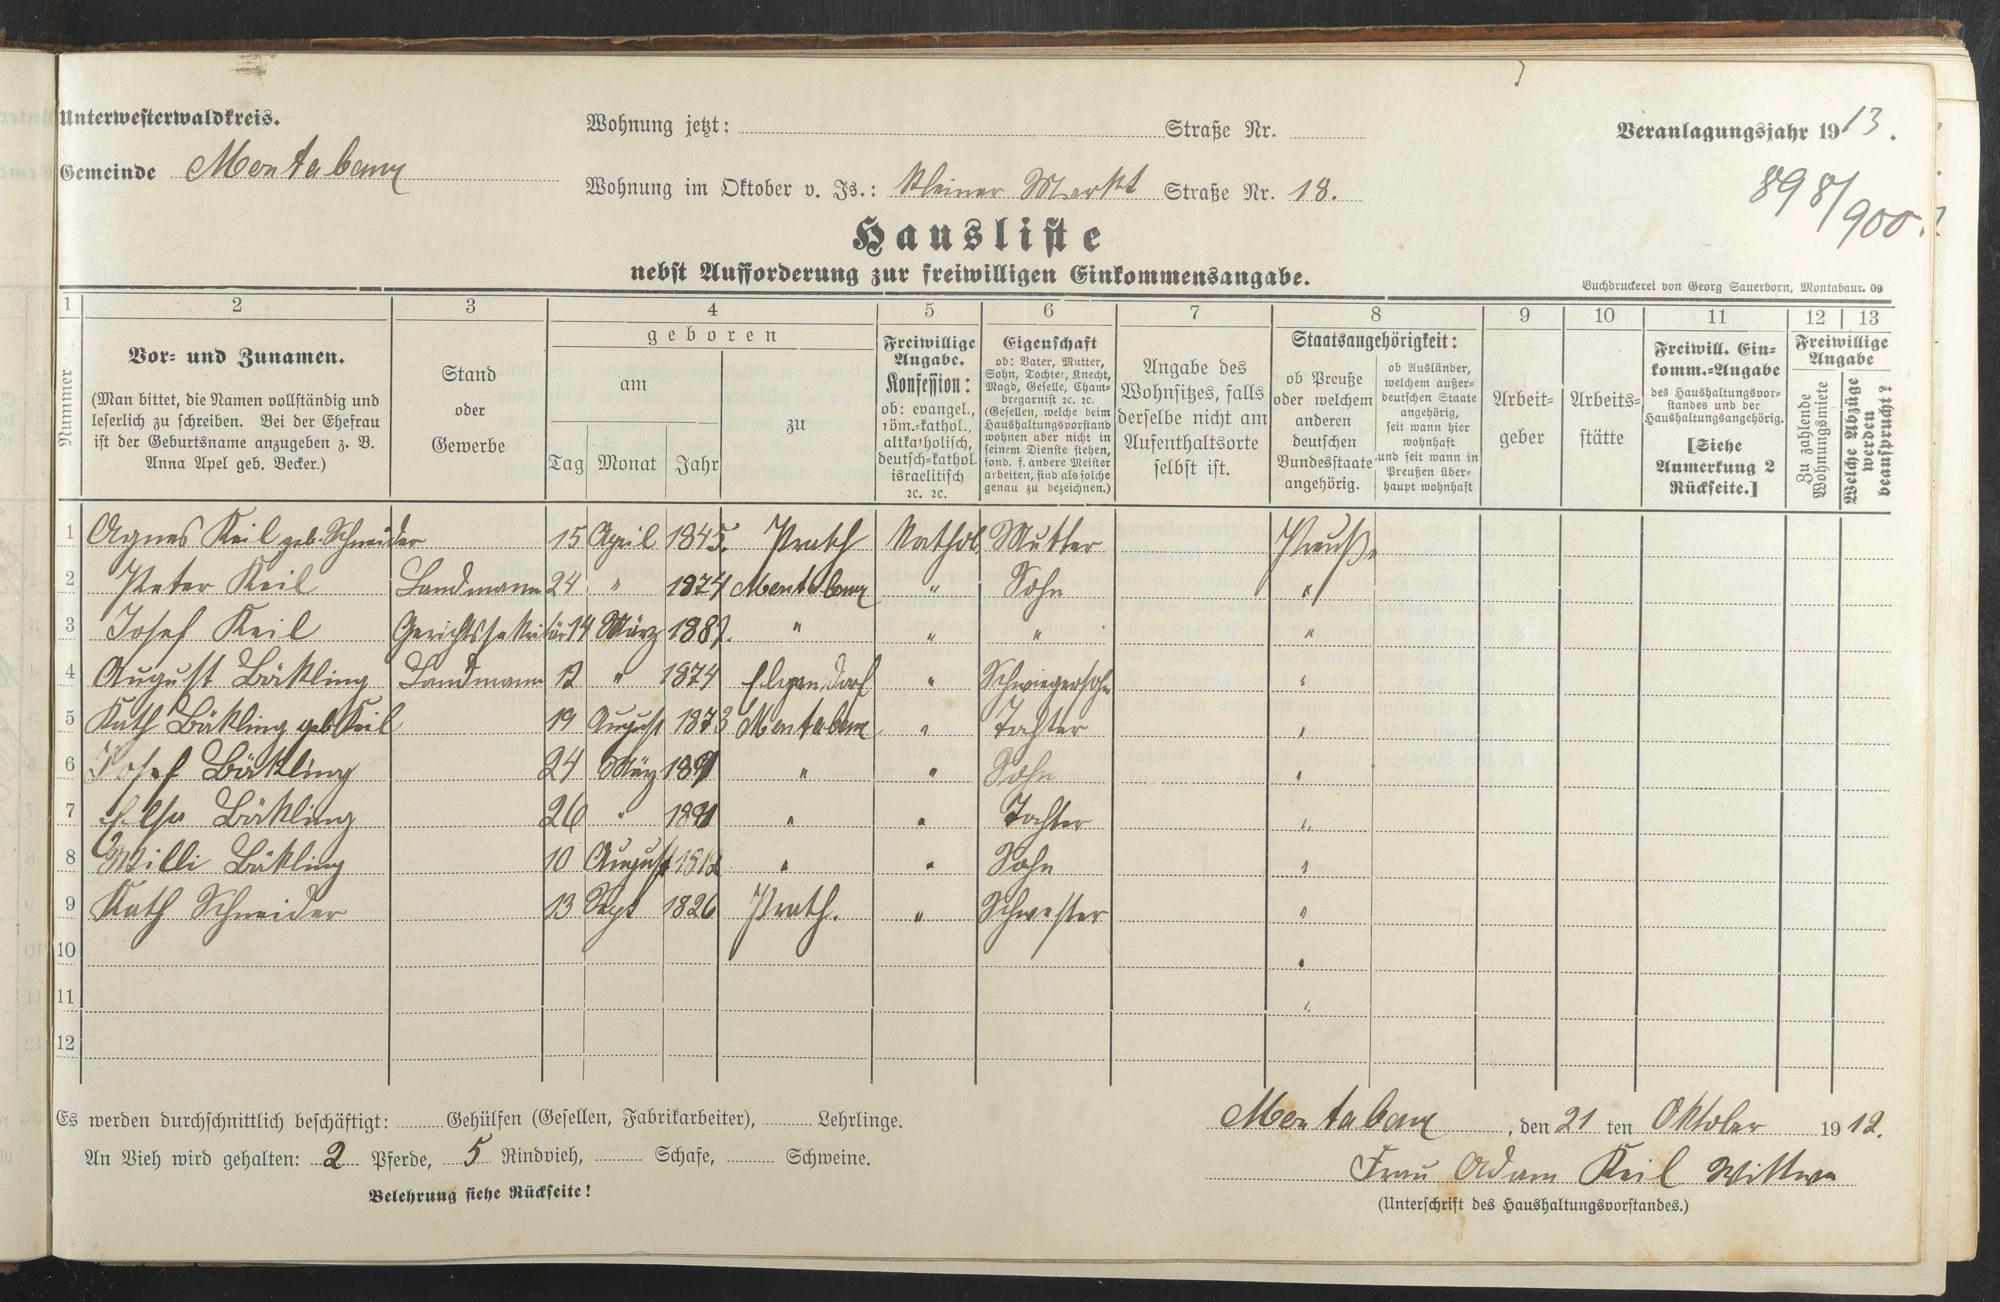 Unterwesterwaldkreis.
Gemeinde Montabaur
Wohnung jetzt: Straße Nr.
Wohnung im Oktober v. Js.: Kleiner Markt Straße Nr. 18.
Veranlagungsjahr 1913.
898/900.
Hausliste
nebst Aufforderung zur freiwilligen Einkommensangabe.
Buchdruckerei von Georg Sauerborn, Montabaur. 09
1 2 3 4 5 6 7 8 9 10 11 12 13
Nummer
Vor- und Zunamen.
(Man bittet, die Namen vollständig und
leserlich zu schreiben. Bei der Ehefrau
ist der Geburtsname anzugeben z. B.
Anna Apel geb. Becker.)
Stand
oder
Gewerbe
geboren
am
Tag Monat Jahr
zu
Freiwillige
Angabe.
Konfession:
ob: evangel.,
röm.-kathol.,
altkatholisch,
deutsch-kathol.
israelitisch
ꝛc. ꝛc.
Eigenschaft
ob: Vater, Mutter,
Sohn, Tochter, Knecht,
Magd, Geselle, Cham-
bregarnist ꝛc. ꝛc.
(Gesellen, welche beim
Haushaltungsvorstand
wohnen aber nicht in
seinem Dienste stehen,
sond. f. andere Meister
arbeiten, sind als solche
genau zu bezeichnen.)
Angabe des
Wohnsitzes, falls
derselbe nicht am
Aufenthaltsorte
selbst ist.
Staatsangehörigkeit:
ob Preuße
oder welchem
anderen
deutschen
Bundesstaate
angehörig.
ob Ausländer,
welchem außer-
deutschen Staate
angehörig,
seit wann hier
wohnhaft
und seit wann in
Preußen über-
haupt wohnhaft
Arbeit-
geber
Arbeits-
stätte
Freiwill. Ein-
komm.-Angabe
des Haushaltungsvor-
standes und der
Haushaltungsangehörig.
[Siehe
Anmerkung 2
Rückseite.]
Freiwillige
Angabe
Zu zahlende
Wohnungsmiete
Welche Abzüge
werden
beansprucht?
1 Agnes Keil geb. Schneider 15 April 1845. Prath Kathol. Mutter Preuße
2 Peter Keil Landmann 24 " 1874 Montabaur " Sohn "
3 Josef Keil Gerichtssekretär 14 März " " " "
4 August Bäkling Landmann 12 " 1874 Elgendorf " Schwiegersohn "
5 Kath Bäkling geb. Keil 19 August 1873 Montabaur " Tochter "
6 Josef Bäkling 24 März " " Sohn "
7 Else Bäkling 26 " " " Tochter "
8 Willi Bäkling 10 August " " Sohn "
9 Kath Schneider 13 Sept 1826 Prath. " Schwester "
10 "
11 "
12
Es werden durchschnittlich beschäftigt: Gehülfen (Gesellen, Fabrikarbeiter), Lehrlinge.
An Vieh wird gehalten: 2 Pferde, 5 Rindvieh, Schafe, Schweine.
Belehrung siehe Rückseite!
Montabaur, den 21 ten Oktober 1912.
Frau Adam Keil Wittwe
(Unterschrift des Haushaltungsvorstandes.)